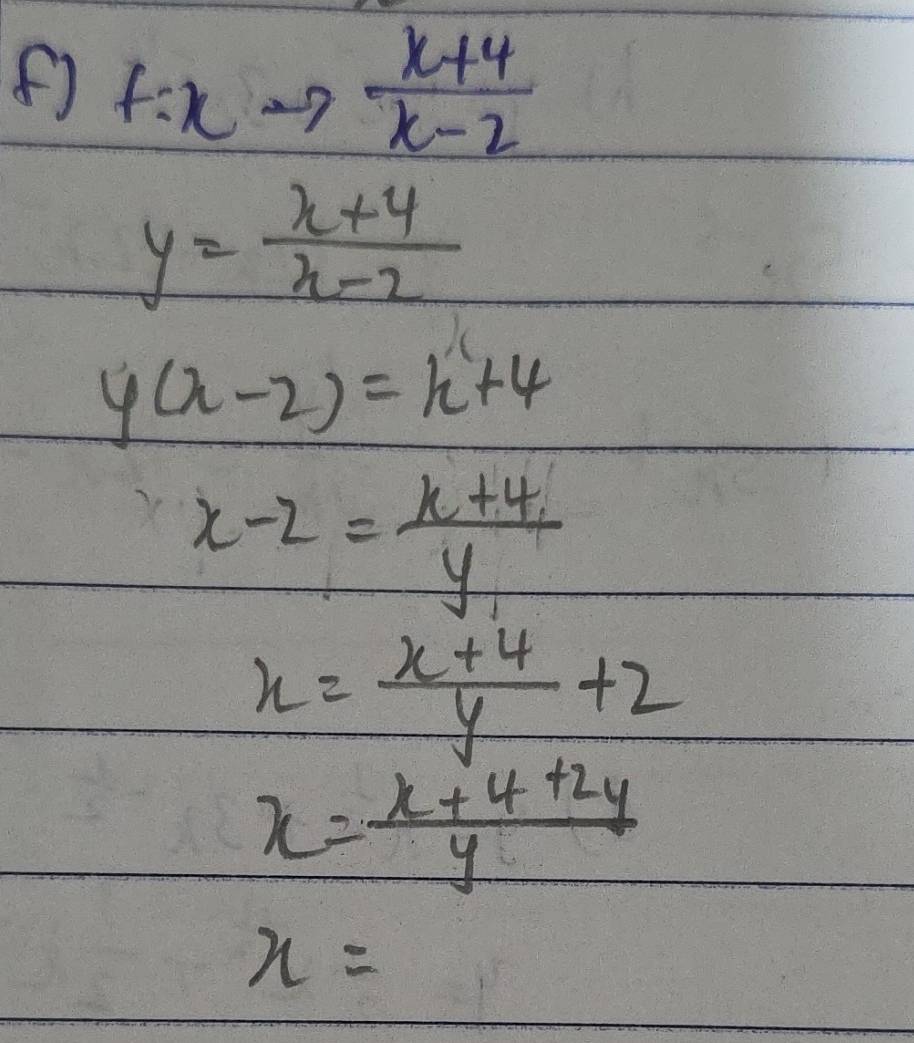 f) f:x → x+4/x-2
y = x+4/x-2
y(x-2) = x+4
x-2 = x+4/y
x = x+4/y +2
x = x+4+2y/y
x =